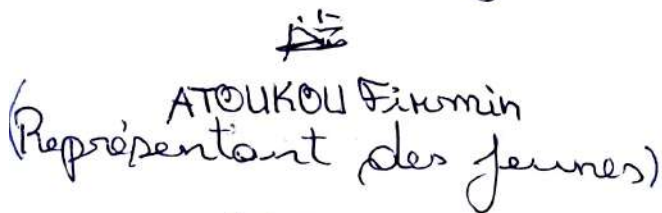 ATOUKOU Firmin
(Représentant des jeunes)